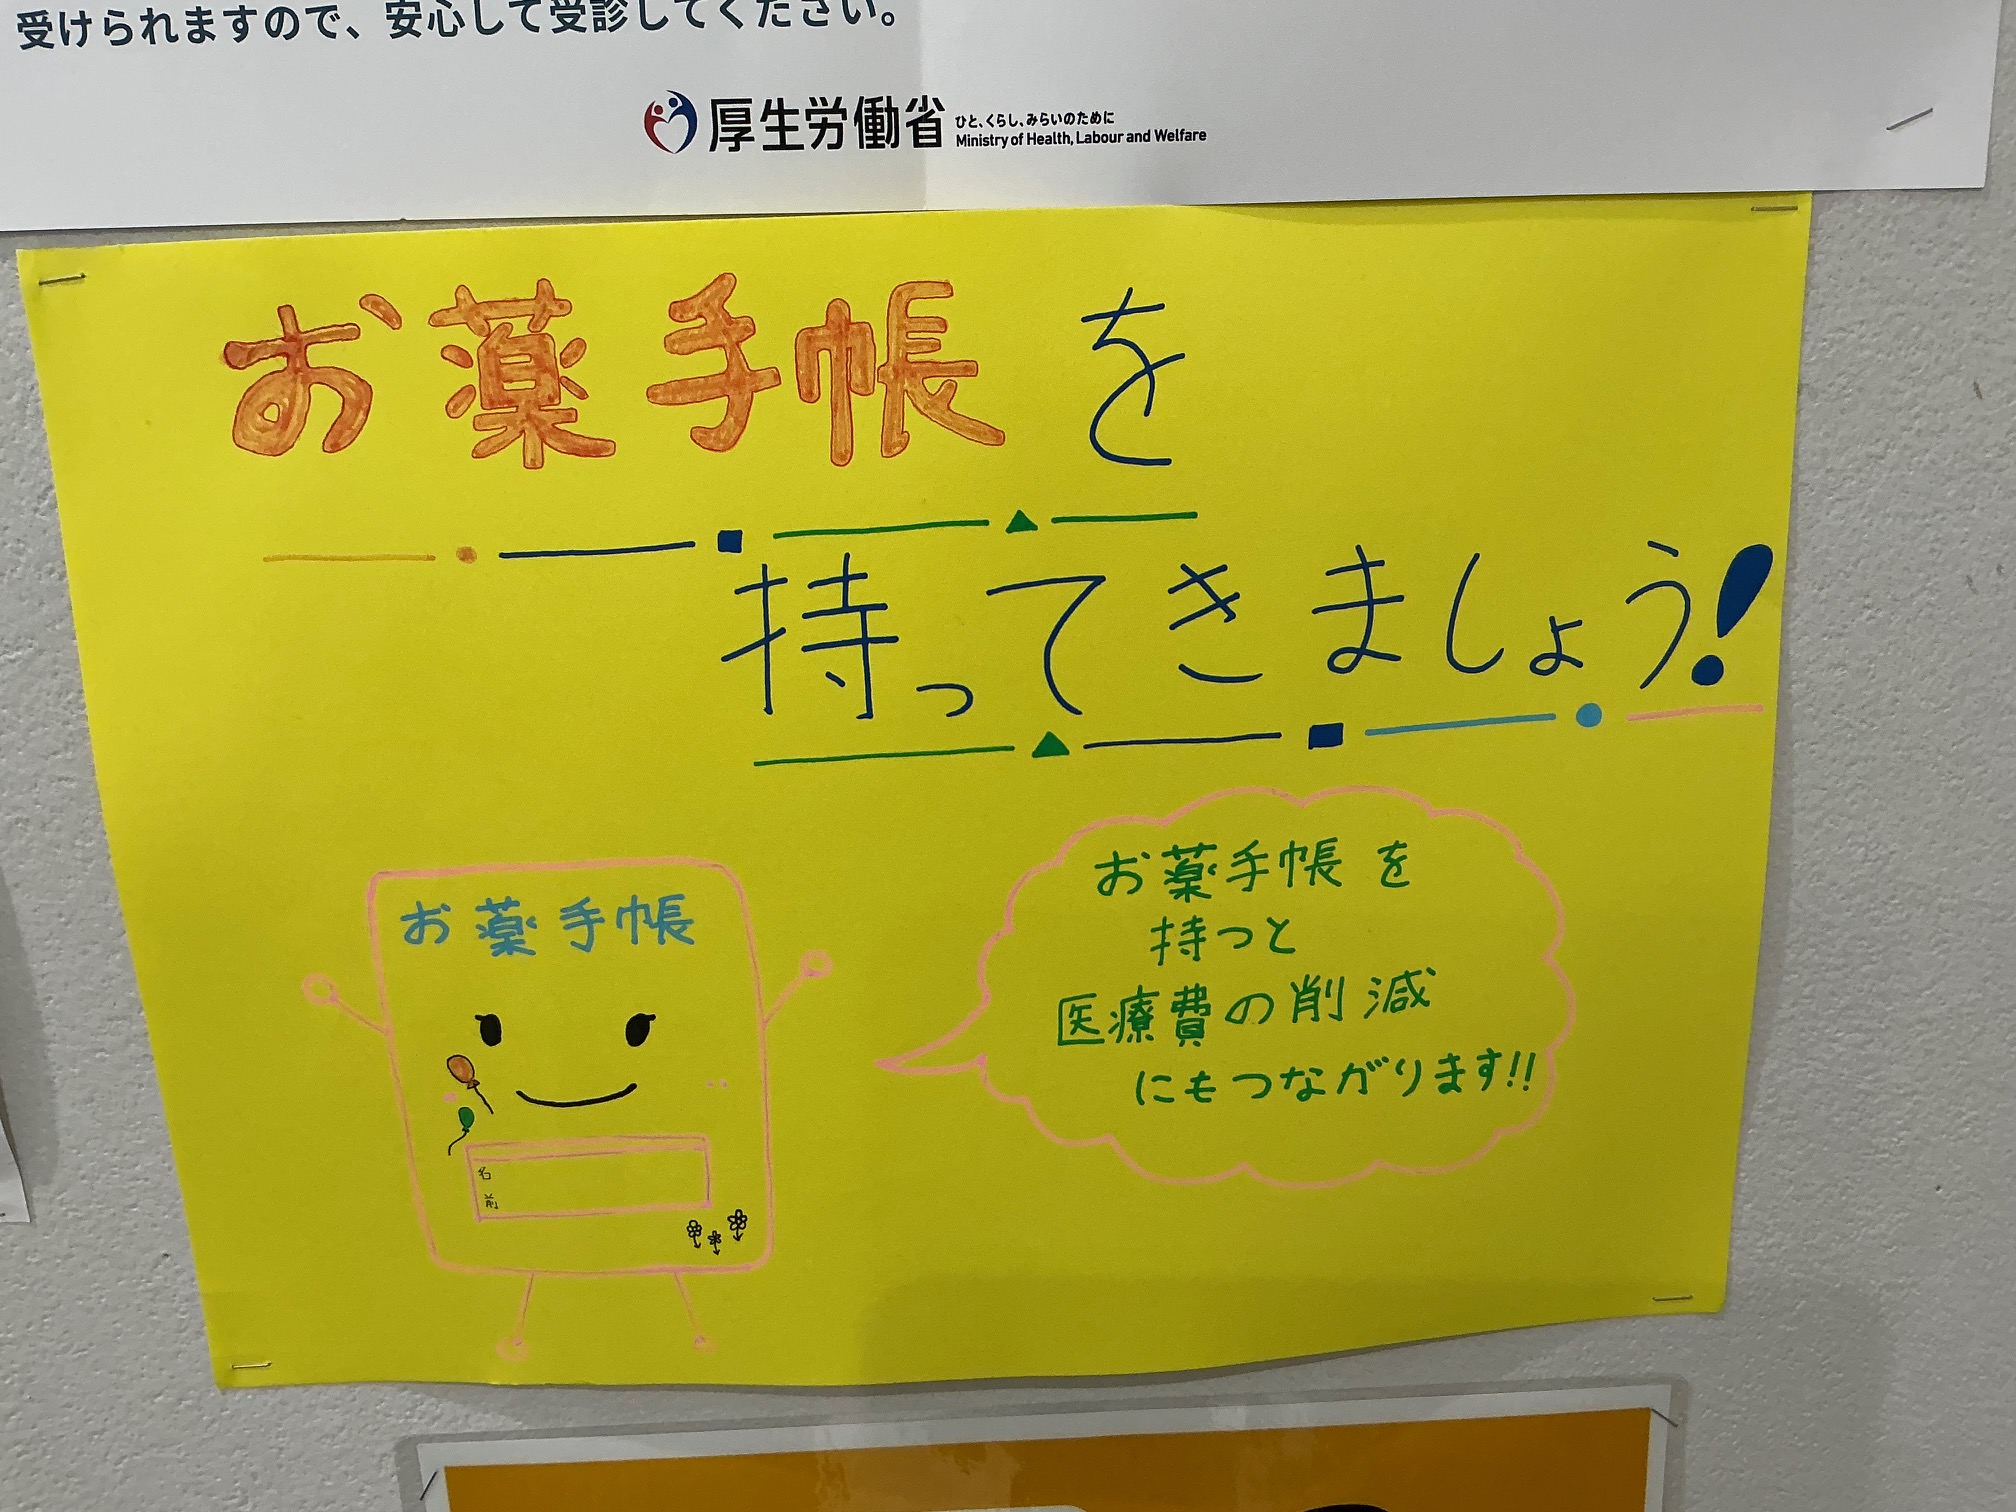 受けられますので、安心して受診してください。
厚生労働省
ひと、くらし、みらいのために
Ministry of Health, Labour and Welfare
お薬手帳を
持ってきましょう!
お薬手帳
名前
お薬手帳を
持つと
医療費の削減
にもつながります!!